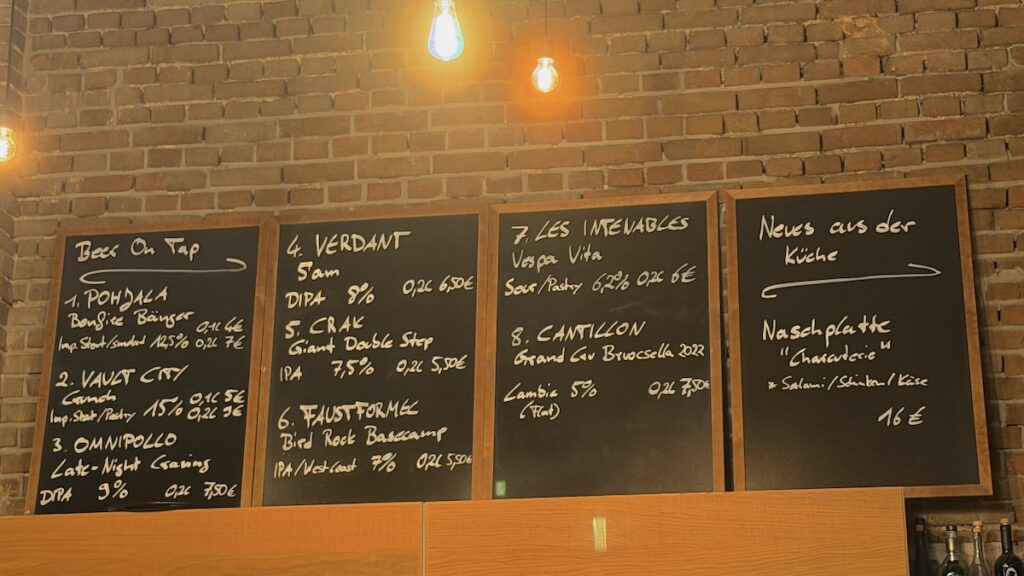 Beer On Tap
1. POHJALA
Bonfire Bänger
Imp. Stout/Smoked 12,5% 0,1L 4€
0,2L 7€
2. VAULT CITY
Imp. Stout/Pastry 15% 0,1L 5€
0,2L 9€
3. OMNIPOLLO
Late-Night Craving
DIPA 9% 0,2L 7,50€
4. VERDANT
5am
DIPA 8% 0,2L 6,50€
5. CRAK
Giant Double Step
IPA 7,5% 0,2L 5,50€
6. FAUSTFORMEL
Bird Rock Basecamp
IPA/Westcoast 7% 0,2L 5,50€
7. LES INTENABLES
Vespa Vita
Sour/Pastry 6,2% 0,2L 6€
8. CANTILLON
Grand Cru Bruocsella 2022
Lambic 5% 0,2L 7,50€
(Flat)
Neues aus der
Küche
Naschplatte
"Charcuterie"
* Salami/Schinken/Käse
16€